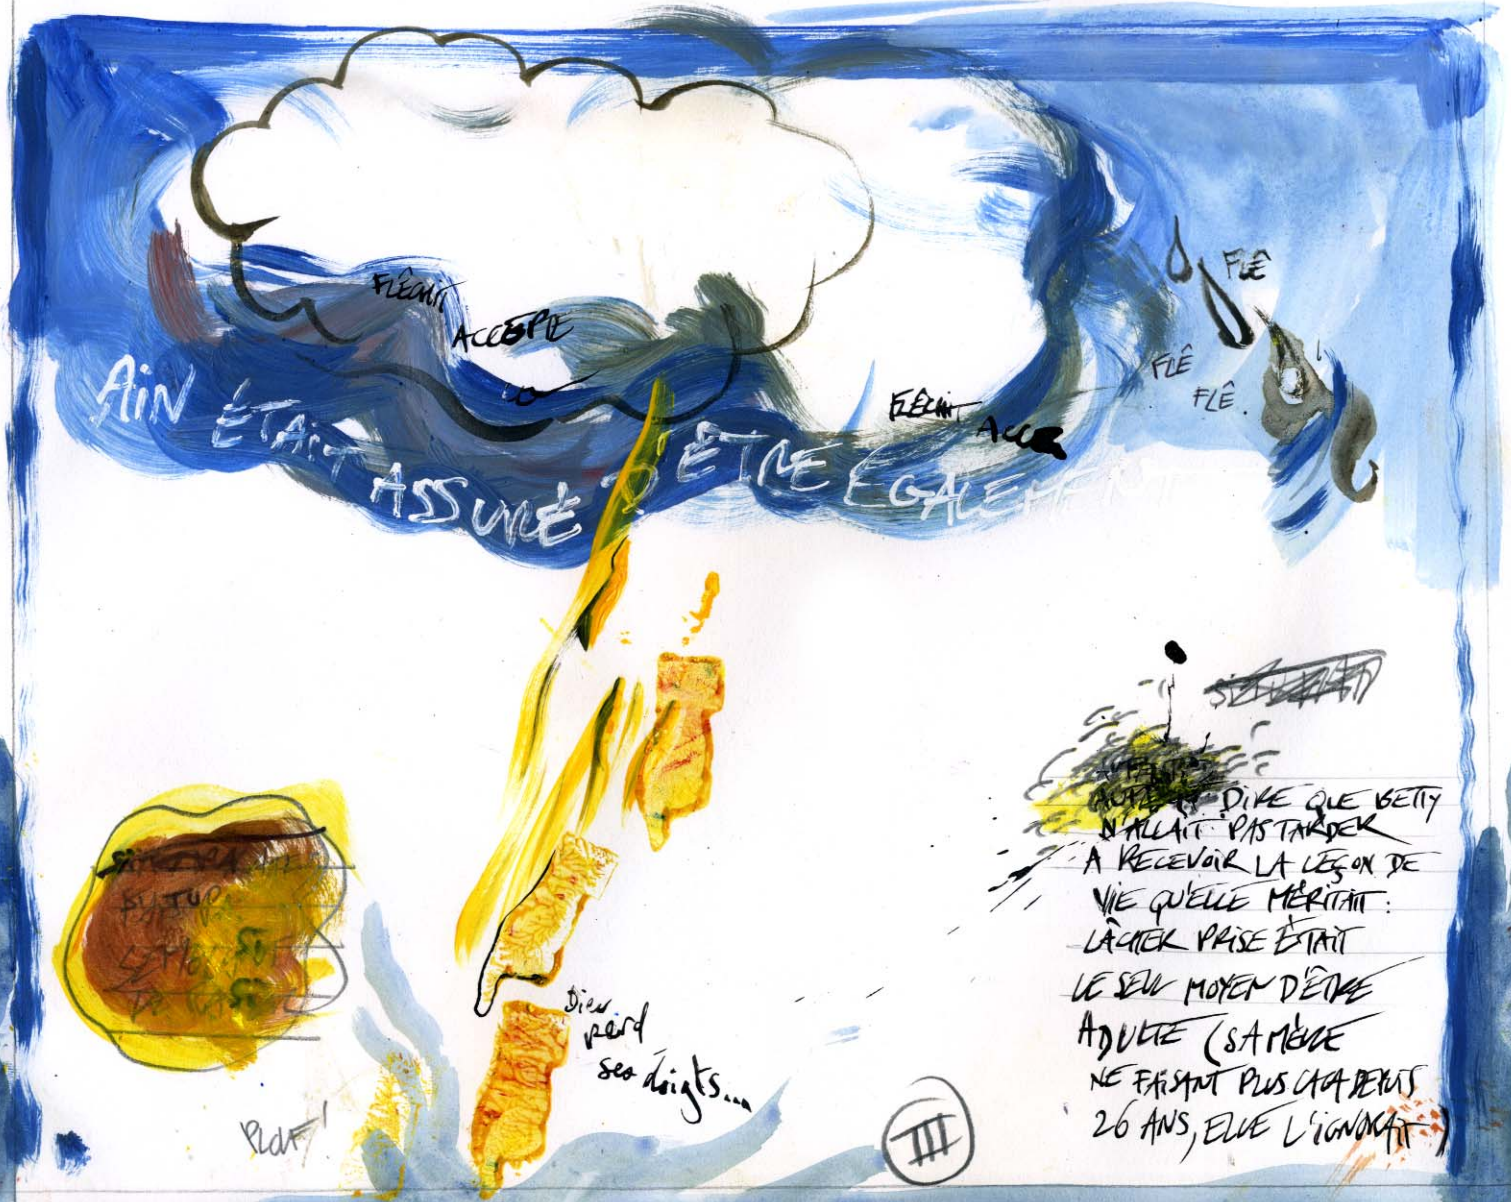 FLÊCHIT
ACCEPTE
FLÊ
FLÊ
FLÊ
FLÊCHIT
AIN ÉTAIT ASSURÉ D'ÊTRE ÉGALEMENT
DIRE QUE BETTY
N'ALLAIT PAS TARDER
A RECEVOIR LA LEÇON DE
VIE QU'ELLE MÉRITAIT :
LÂCHER PRISE ÉTAIT
LE SEUL MOYEN D'ÊTRE
ADULTE (SA MÈRE
NE FAISANT PLUS CACA DEPUIS
26 ANS, ELLE L'IGNORAIT)
FUTUR
Dieu
perd
ses doigts...
PLOUF!
III